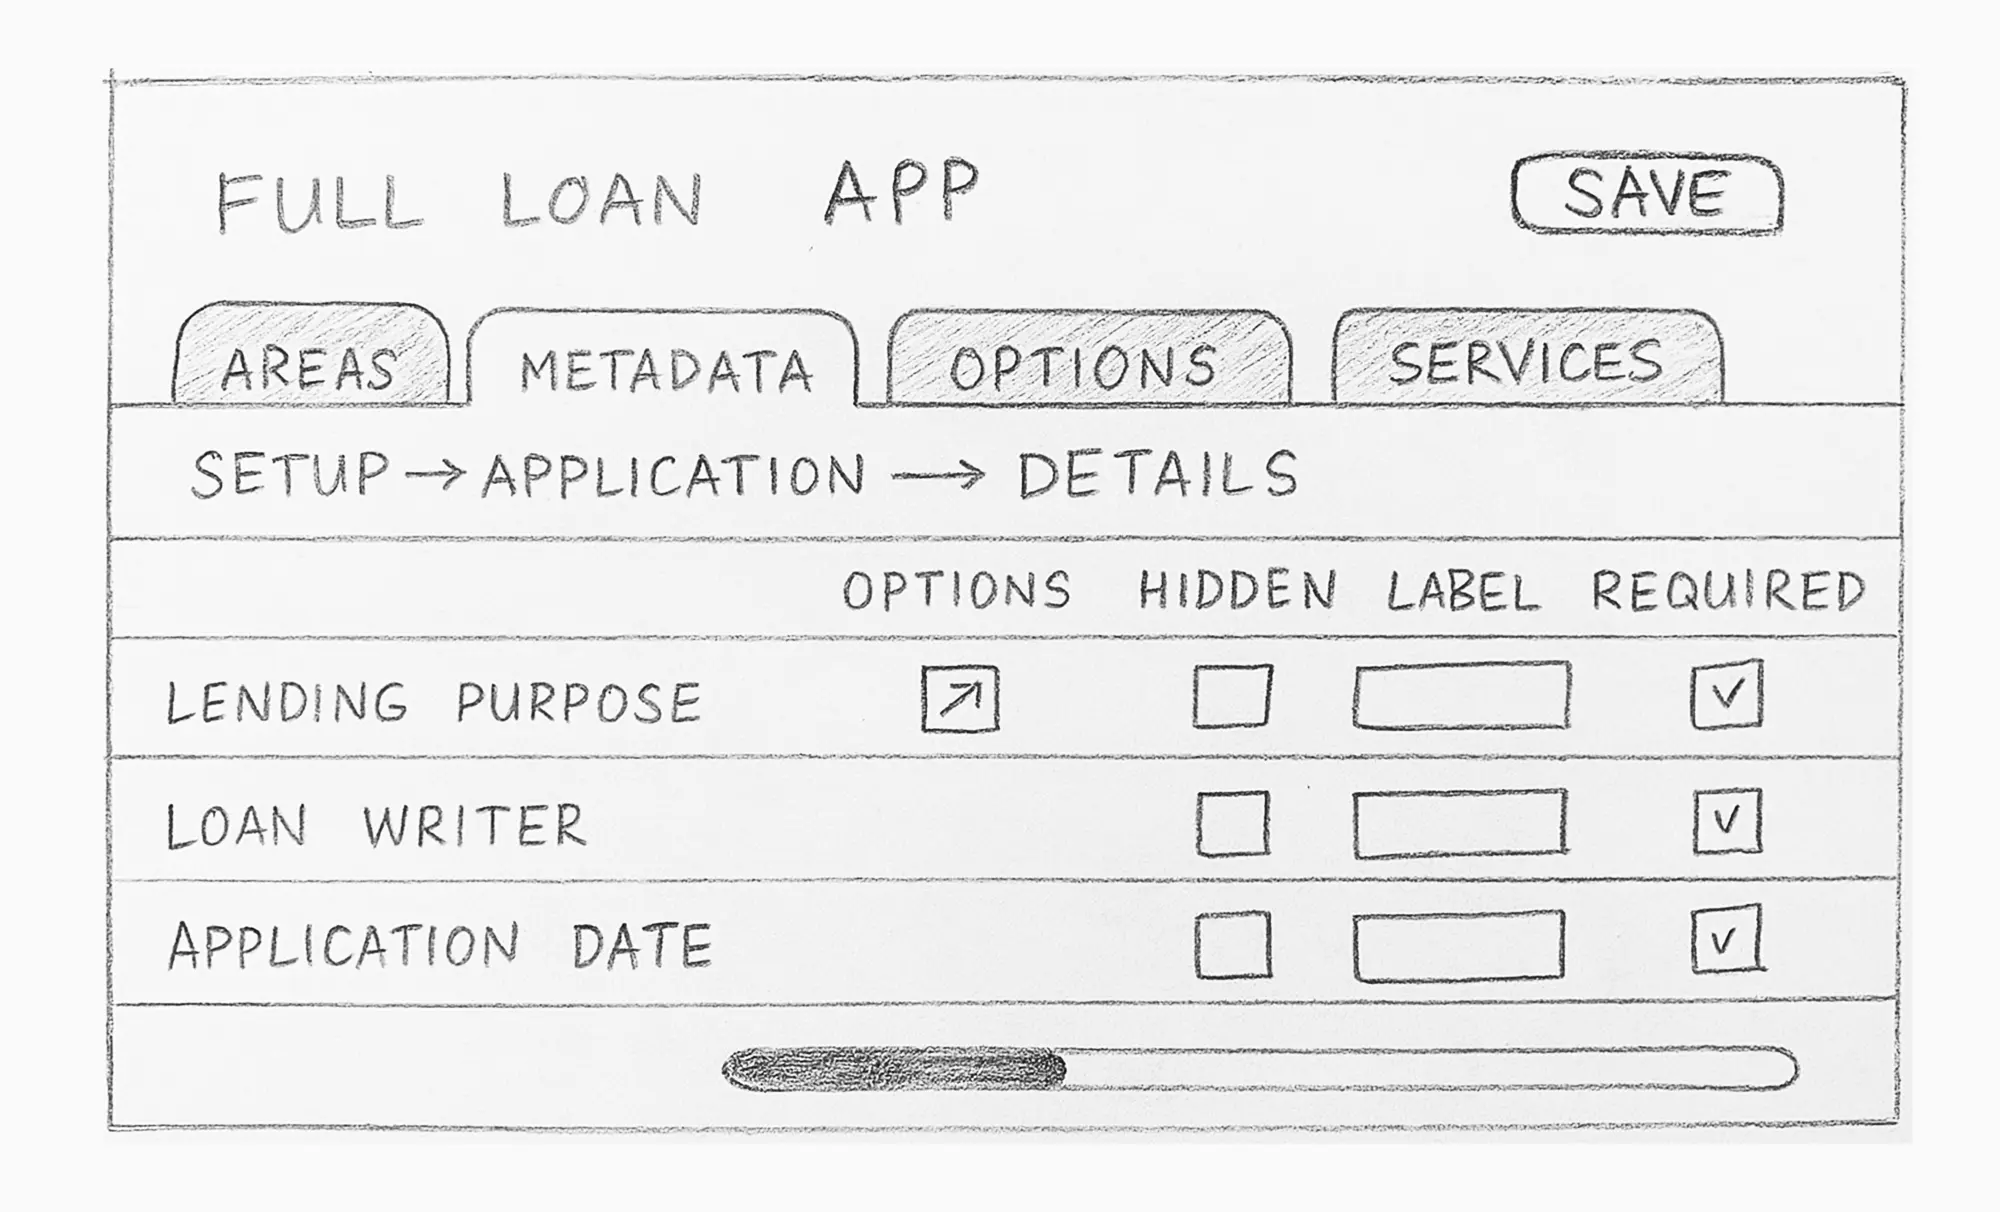 FULL LOAN APP SAVE
AREAS METADATA OPTIONS SERVICES
SETUP → APPLICATION → DETAILS
OPTIONS HIDDEN LABEL REQUIRED
LENDING PURPOSE
LOAN WRITER
APPLICATION DATE